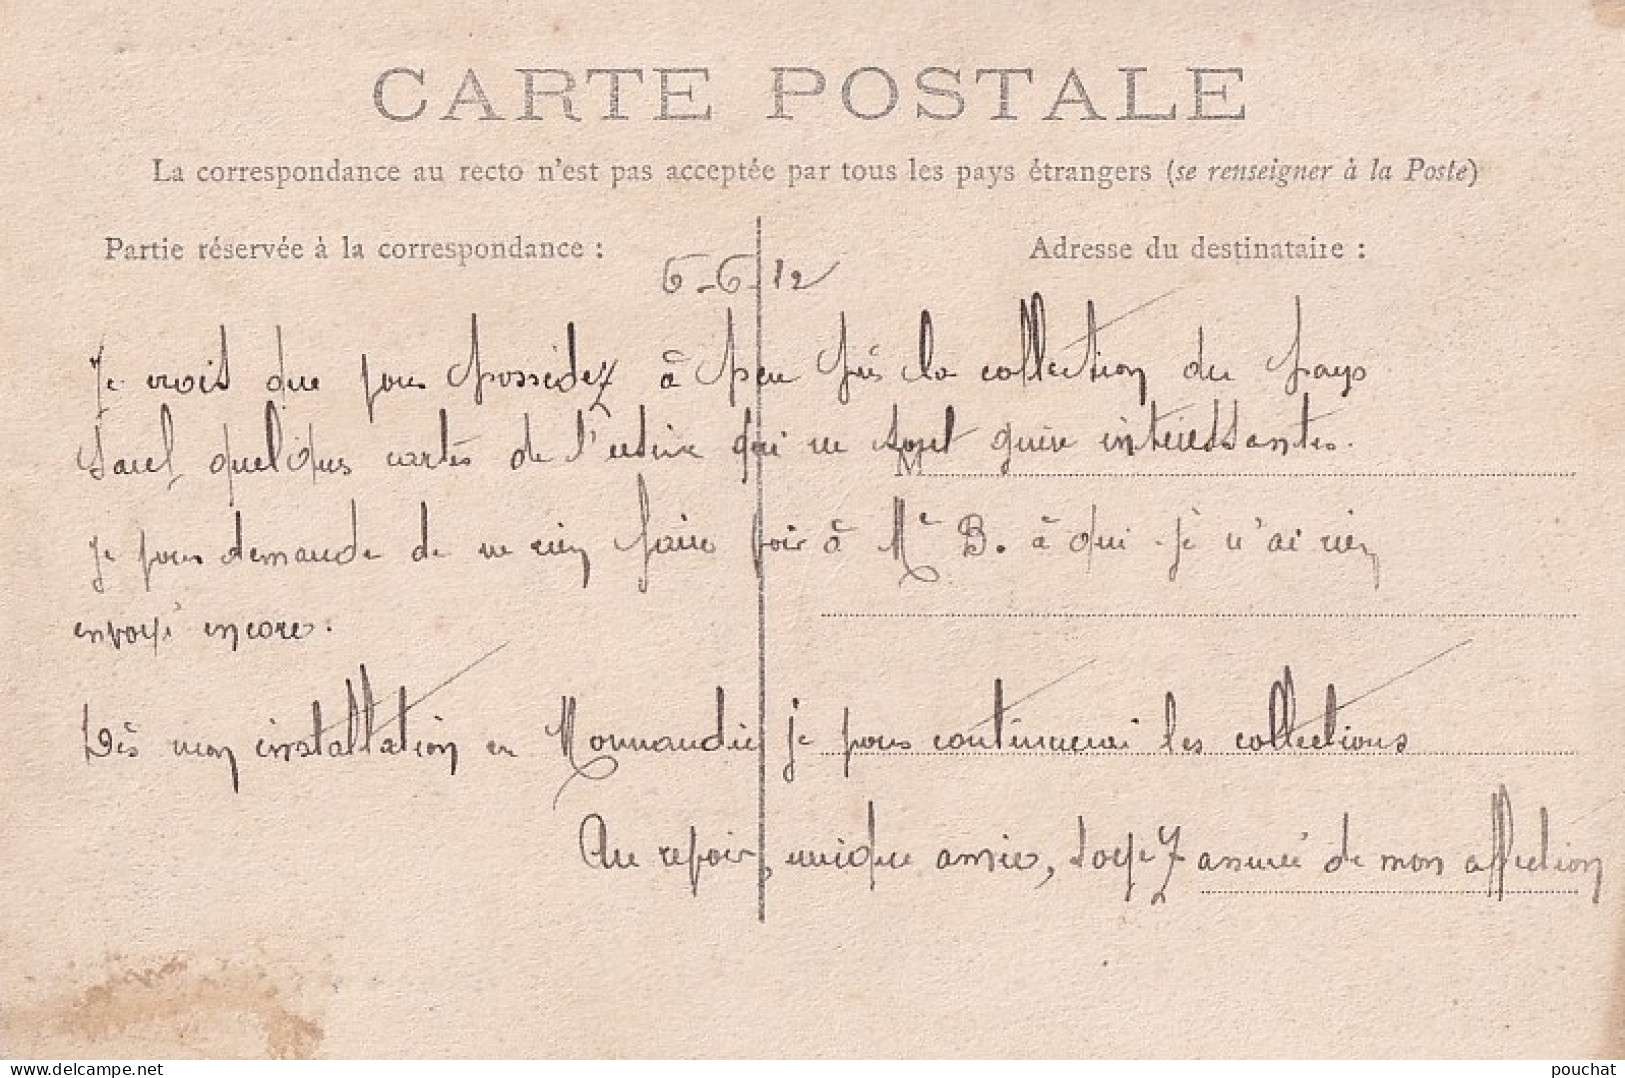 CARTE POSTALE
La correspondance au recto n'est pas acceptée par tous les pays étrangers (se renseigner à la Poste)
Partie réservée à la correspondance :
Adresse du destinataire :
6-6-12
Je crois que vous possédez à peu près la collection du pays
sauf quelques cartes de l'usine qui ne sont guère intéressantes.
je vous demande de ne rien faire voir à Me B. à qui je n'ai rien
envoyé encore.
Dès mon installation en Normandie je vous continuerai les collections
Au revoir, unique amie, soyez assurée de mon affection
delcampe.net
pouchat